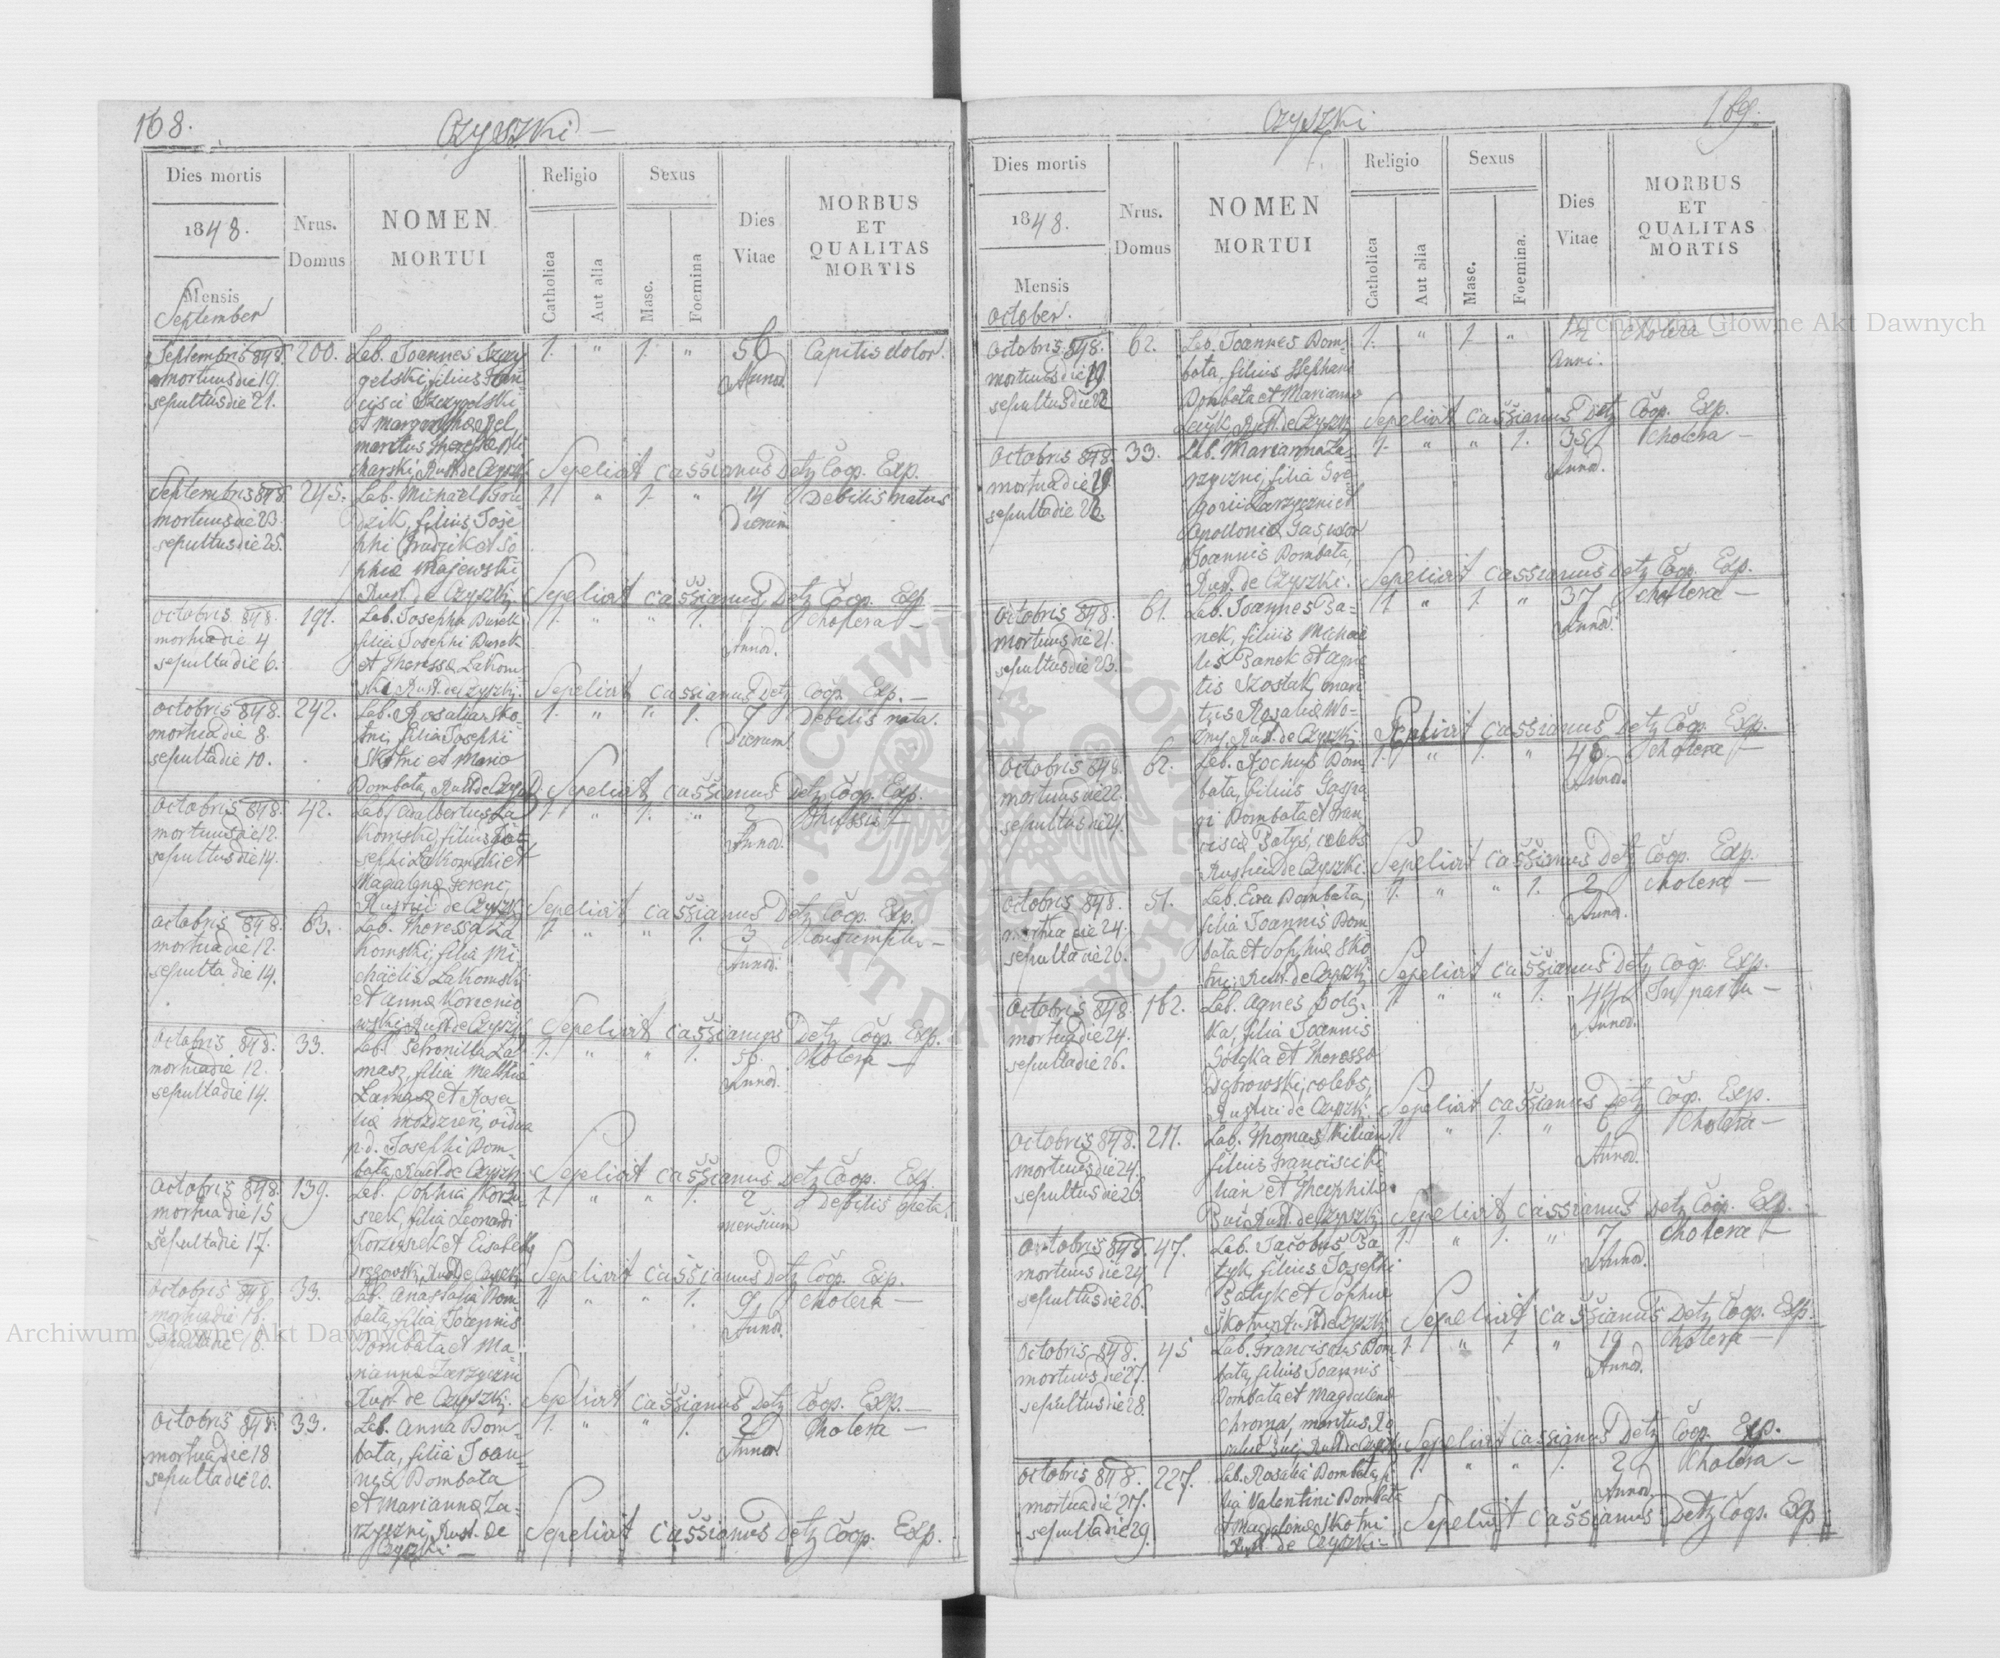 168.
Czyszki
Dies mortis
1848.
Mensis
September
Nrus.
Domus
NOMEN
MORTUI
Religio
Catholica
Aut alia
Sexus
Masc.
Foemina
Dies
Vitae
MORBUS
ET
QUALITAS
MORTIS
Septembris 848.
mortuus die 19.
sepultus die 21.
200.
Lab. Joannes
filius
1. " 1. "
56
Annor.
Capitis dolor.
Sepelivit Cassianus Detz Coop. Exp.
Septembris 848.
mortuus die 23.
sepultus die 25.
245.
Lab. Michael Gru-
dzik, filius Jose
phi Grudzik et So
phia Majewski
Rust. de Czyszki
1. " 1. "
14
Dierum
Debilis natus
Sepelivit Cassianus Detz Coop. Exp.
Octobris 848.
mortua die 4
sepulta die 6.
191.
Lab. Josepha Durek
filia Josephi Durek
et Theressa Lakom
ski Rust. de Czyszki.
1. " " 1.
1
Annor.
Cholera —
Sepelivit Cassianus Detz Coop. Exp. —
Octobris 848.
mortua die 8.
sepulta die 10.
242.
Lab. Rosalia Sko-
tni, filia Josephi
Skotni et Maria
Dombata, Rust. de Czysz
1. " " 1.
7
Dierum
Debilis nata.
Sepelivit Cassianus Detz Coop. Exp.
Octobris 848.
mortuus die 12.
sepultus die 14.
42.
Lab. Adalbertus La
komski, filius Jo-
sephi Lakomski et
Magdalena Ferenc,
Rustici de Czyszki
1. " 1. "
2
Annor.
Thussis —
Sepelivit Cassianus Detz Coop. Exp.
Octobris 848.
mortua die 12.
sepulta die 14.
63.
Lab. Theressa La
komski, filia Mi
chaelis Lakomski
et Anna Korzenio
wski Rust. de Czyszki
1. " " 1.
3
Annor.
Sepelivit Cassianus Detz Coop. Exp.
Octobris 848.
mortua die 12.
sepulta die 14.
33.
Lab. Petronilla La
masz, filia Mathia
Lamasz et Rosa
lia Mozdzien, vidua
p.d. Josephi Dom-
bata, Rust. de Czyszki
1. " " 1.
56.
Annor.
Cholera —
Sepelivit Cassianus Detz Coop. Exp.
Octobris 848.
mortua die 15
sepulta die 17.
139.
Lab. Sophia
filia Leonardi
et Elisabeth
1. " " 1.
2
mensium
Debilis
Sepelivit Cassianus Detz Coop. Exp.
Octobris 848.
mortua die 16.
sepulta die 18.
33.
Lab. Anastasia Dom
bata, filia Joannis
Dombata et Ma-
rianna Zarzyczni
Rust. de Czyszki.
1. " " 1.
9
Annor.
Cholera —
Sepelivit Cassianus Detz Coop. Exp. —
Octobris 848.
mortua die 18
sepulta die 20.
33.
Lab. Anna Dom-
bata, filia Joan-
nis Dombata
et Marianna Za-
rzyczni, Rust. de
Czyszki. —
1. " " 1.
2
Annor
Cholera —
Sepelivit Cassianus Detz Coop. Exp.
169.
Czyszki
Dies mortis
1848.
Mensis
October.
Nrus.
Domus
NOMEN
MORTUI
Religio
Catholica
Aut alia
Sexus
Masc.
Foemina.
Dies
Vitae
MORBUS
ET
QUALITAS
MORTIS
Octobris 848.
mortuus die 19
sepultus die 22
62.
Lab. Joannes Dom-
bata, filius Stephani
Dombata et Marianna
Rust. de Czyszki
1. " 1. "
1/2
Anni.
Cholera
Sepelivit Cassianus Detz Coop. Exp.
Octobris 848.
mortua die 19
sepulta die 22.
33.
Lab. Marianna Za-
rzyczni, filia Gre-
gorii Zarzyczni et
Apollonia Gas, uxor
Joannis Dombata,
Rust. de Czyszki.
1. " " 1.
35
Annor.
Cholera —
Sepelivit Cassianus Detz Coop. Exp.
Octobris 848.
mortuus die 21.
sepultus die 23.
61.
Lab. Joannes Ba-
nek, filius Michae
lis Banek et Agne
tis Szostak, mari
tus Rosalia Wo-
zny, Rust. de Czyszki.
1. " 1. "
37
Annor.
Cholera —
Sepelivit Cassianus Detz Coop. Exp.
Octobris 848.
mortuus die 22.
sepultus die 24.
62.
Lab. Rochus Dom-
bata, filius Gaspa
ri Dombata et Fran
cisca Batyš, celebs
Rustici de Czyszki.
1. " 1. "
40.
Annor.
Cholera —
Sepelivit Cassianus Detz Coop. Exp.
Octobris 848.
mortua die 24.
sepulta die 26.
51.
Lab. Eva Dombata,
filia Joannis Dom
bata et Sophia Sko
tni, Rust. de Czyszki
1. " " 1.
2
Annor.
Cholera —
Sepelivit Cassianus Detz Coop. Exp.
Octobris 848.
mortua die 24.
sepulta die 26.
162.
Lab. Agnes
ka, filia Joannis
et Theressa
Dąbrowski, celebs,
Rustici de Czyszki.
1. " " 1.
44
Annor.
In partu —
Sepelivit Cassianus Detz Coop. Exp.
Octobris 848.
mortuus die 24.
sepultus die 26.
217.
Lab. Thomas Kilian
filius Francisci Ki
lian et Theophila
Rust. de Czyszki
1. " 1. "
6
Annor.
Cholera —
Sepelivit Cassianus Detz Coop. Exp.
Octobris 848.
mortuus die 24
sepultus die 26.
47.
Lab. Jacobus Ba
tyk, filius Josephi
Batyk et Sophia
1. " 1. "
7
Annor.
Cholera —
Sepelivit Cassianus Detz Coop. Exp.
Octobris 848.
mortuus die 27.
sepultus die 28.
45
Lab. Franciscus Dom
bata, filius Joannis
Dombata et Magdalena
Chroma, maritus Ro
salia
1. " 1. "
19
Annor.
Cholera —
Sepelivit Cassianus Detz Coop. Exp.
Octobris 848.
mortua die 27.
sepulta die 29.
227.
Lab. Rosalia Dombata, fi
lia Valentini Dombata
et Magdalena Skotni
Rust. de Czyszki —
1. " " 1.
2
Annor.
Cholera —
Sepelivit Cassianus Detz Coop. Exp.
Archiwum Główne Akt Dawnych
Archiwum Główne Akt Dawnych
ARCHIWUM GŁÓWNE AKT DAWNYCH